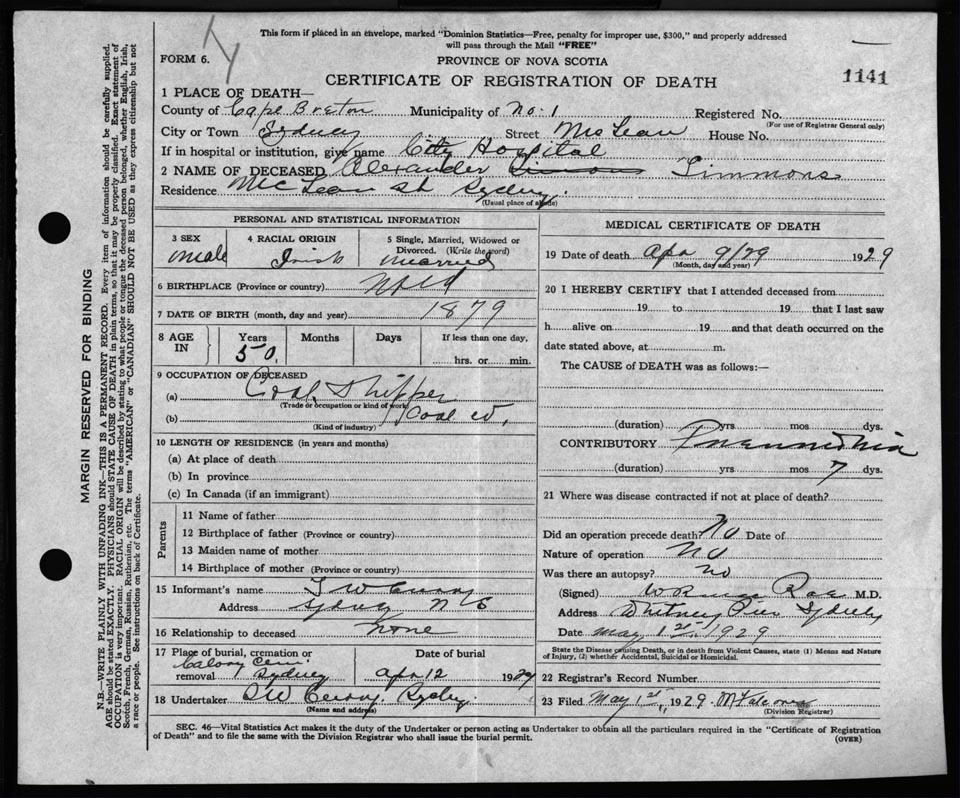 This form if placed in an envelope, marked "Dominion Statistics—Free, penalty for improper use, $300," and properly addressed
will pass through the Mail "FREE"
FORM 6.
PROVINCE OF NOVA SCOTIA
CERTIFICATE OF REGISTRATION OF DEATH
1141
1 PLACE OF DEATH—
County of Cape Breton Municipality of No. 1 Registered No.
(For use of Registrar General only)
City or Town Sydney Street McLean House No.
If in hospital or institution, give name City Hospital
2 NAME OF DECEASED Alexander Simmons
Residence McLean St Sydney.
(Usual place of abode)
PERSONAL AND STATISTICAL INFORMATION
3 SEX
male
4 RACIAL ORIGIN
Irish
5 Single, Married, Widowed or
Divorced. (Write the word)
married
6 BIRTHPLACE (Province or country) Nfld
7 DATE OF BIRTH (month, day and year) 1879
8 AGE IN
Years Months Days If less than one day,
50 hrs. or min.
9 OCCUPATION OF DECEASED
(a) Coal Shipper
(Trade or occupation or kind of work)
(b) Coal Co,
(Kind of industry)
10 LENGTH OF RESIDENCE (in years and months)
(a) At place of death
(b) In province
(c) In Canada (if an immigrant)
Parents
11 Name of father
12 Birthplace of father (Province or country)
13 Maiden name of mother
14 Birthplace of mother (Province or country)
15 Informant's name
Address Sydney N S
16 Relationship to deceased none
17 Place of burial, cremation or
removal
Calvary Cem.
Sydney
Date of burial
Apr 12 1929
18 Undertaker Sydney.
(Name and address)
MEDICAL CERTIFICATE OF DEATH
19 Date of death Apr 9/29 1929
(Month, day and year)
20 I HEREBY CERTIFY that I attended deceased from
19 to 19 that I last saw
h alive on 19 and that death occurred on the
date stated above, at m.
The CAUSE of DEATH was as follows:—
(duration) yrs mos dys.
CONTRIBUTORY Pneumonia
(duration) yrs mos 7 dys.
21 Where was disease contracted if not at place of death?
Did an operation precede death? No Date of
Nature of operation No
Was there an autopsy? No
(Signed) Roe M.D.
Address Whitney Pier Sydney
Date May 1st 1929
State the Disease causing Death, or in death from Violent Causes, state (1) Means and Nature
of Injury, (2) whether Accidental, Suicidal or Homicidal.
22 Registrar's Record Number
23 Filed May 1st, 1929.
(Division Registrar)
SEC. 46—Vital Statistics Act makes it the duty of the Undertaker or person acting as Undertaker to obtain all the particulars required in the "Certificate of Registration
of Death" and to file the same with the Division Registrar who shall issue the burial permit.
(OVER)
MARGIN RESERVED FOR BINDING
N.B.—WRITE PLAINLY WITH UNFADING INK—THIS IS A PERMANENT RECORD. Every item of information should be carefully supplied.
AGE should be stated EXACTLY. PHYSICIANS should STATE CAUSE OF DEATH in plain terms, so that it may be properly classified. Exact statement of
OCCUPATION is very important. RACIAL ORIGIN will be described by stating to what people or tongue the deceased person belonged, whether English, Irish,
Scotch, French, German, Russian, Ruthenian, etc. The terms "AMERICAN" or "CANADIAN" SHOULD NOT BE USED as they express citizenship but not
a race or people. See instructions on back of Certificate.